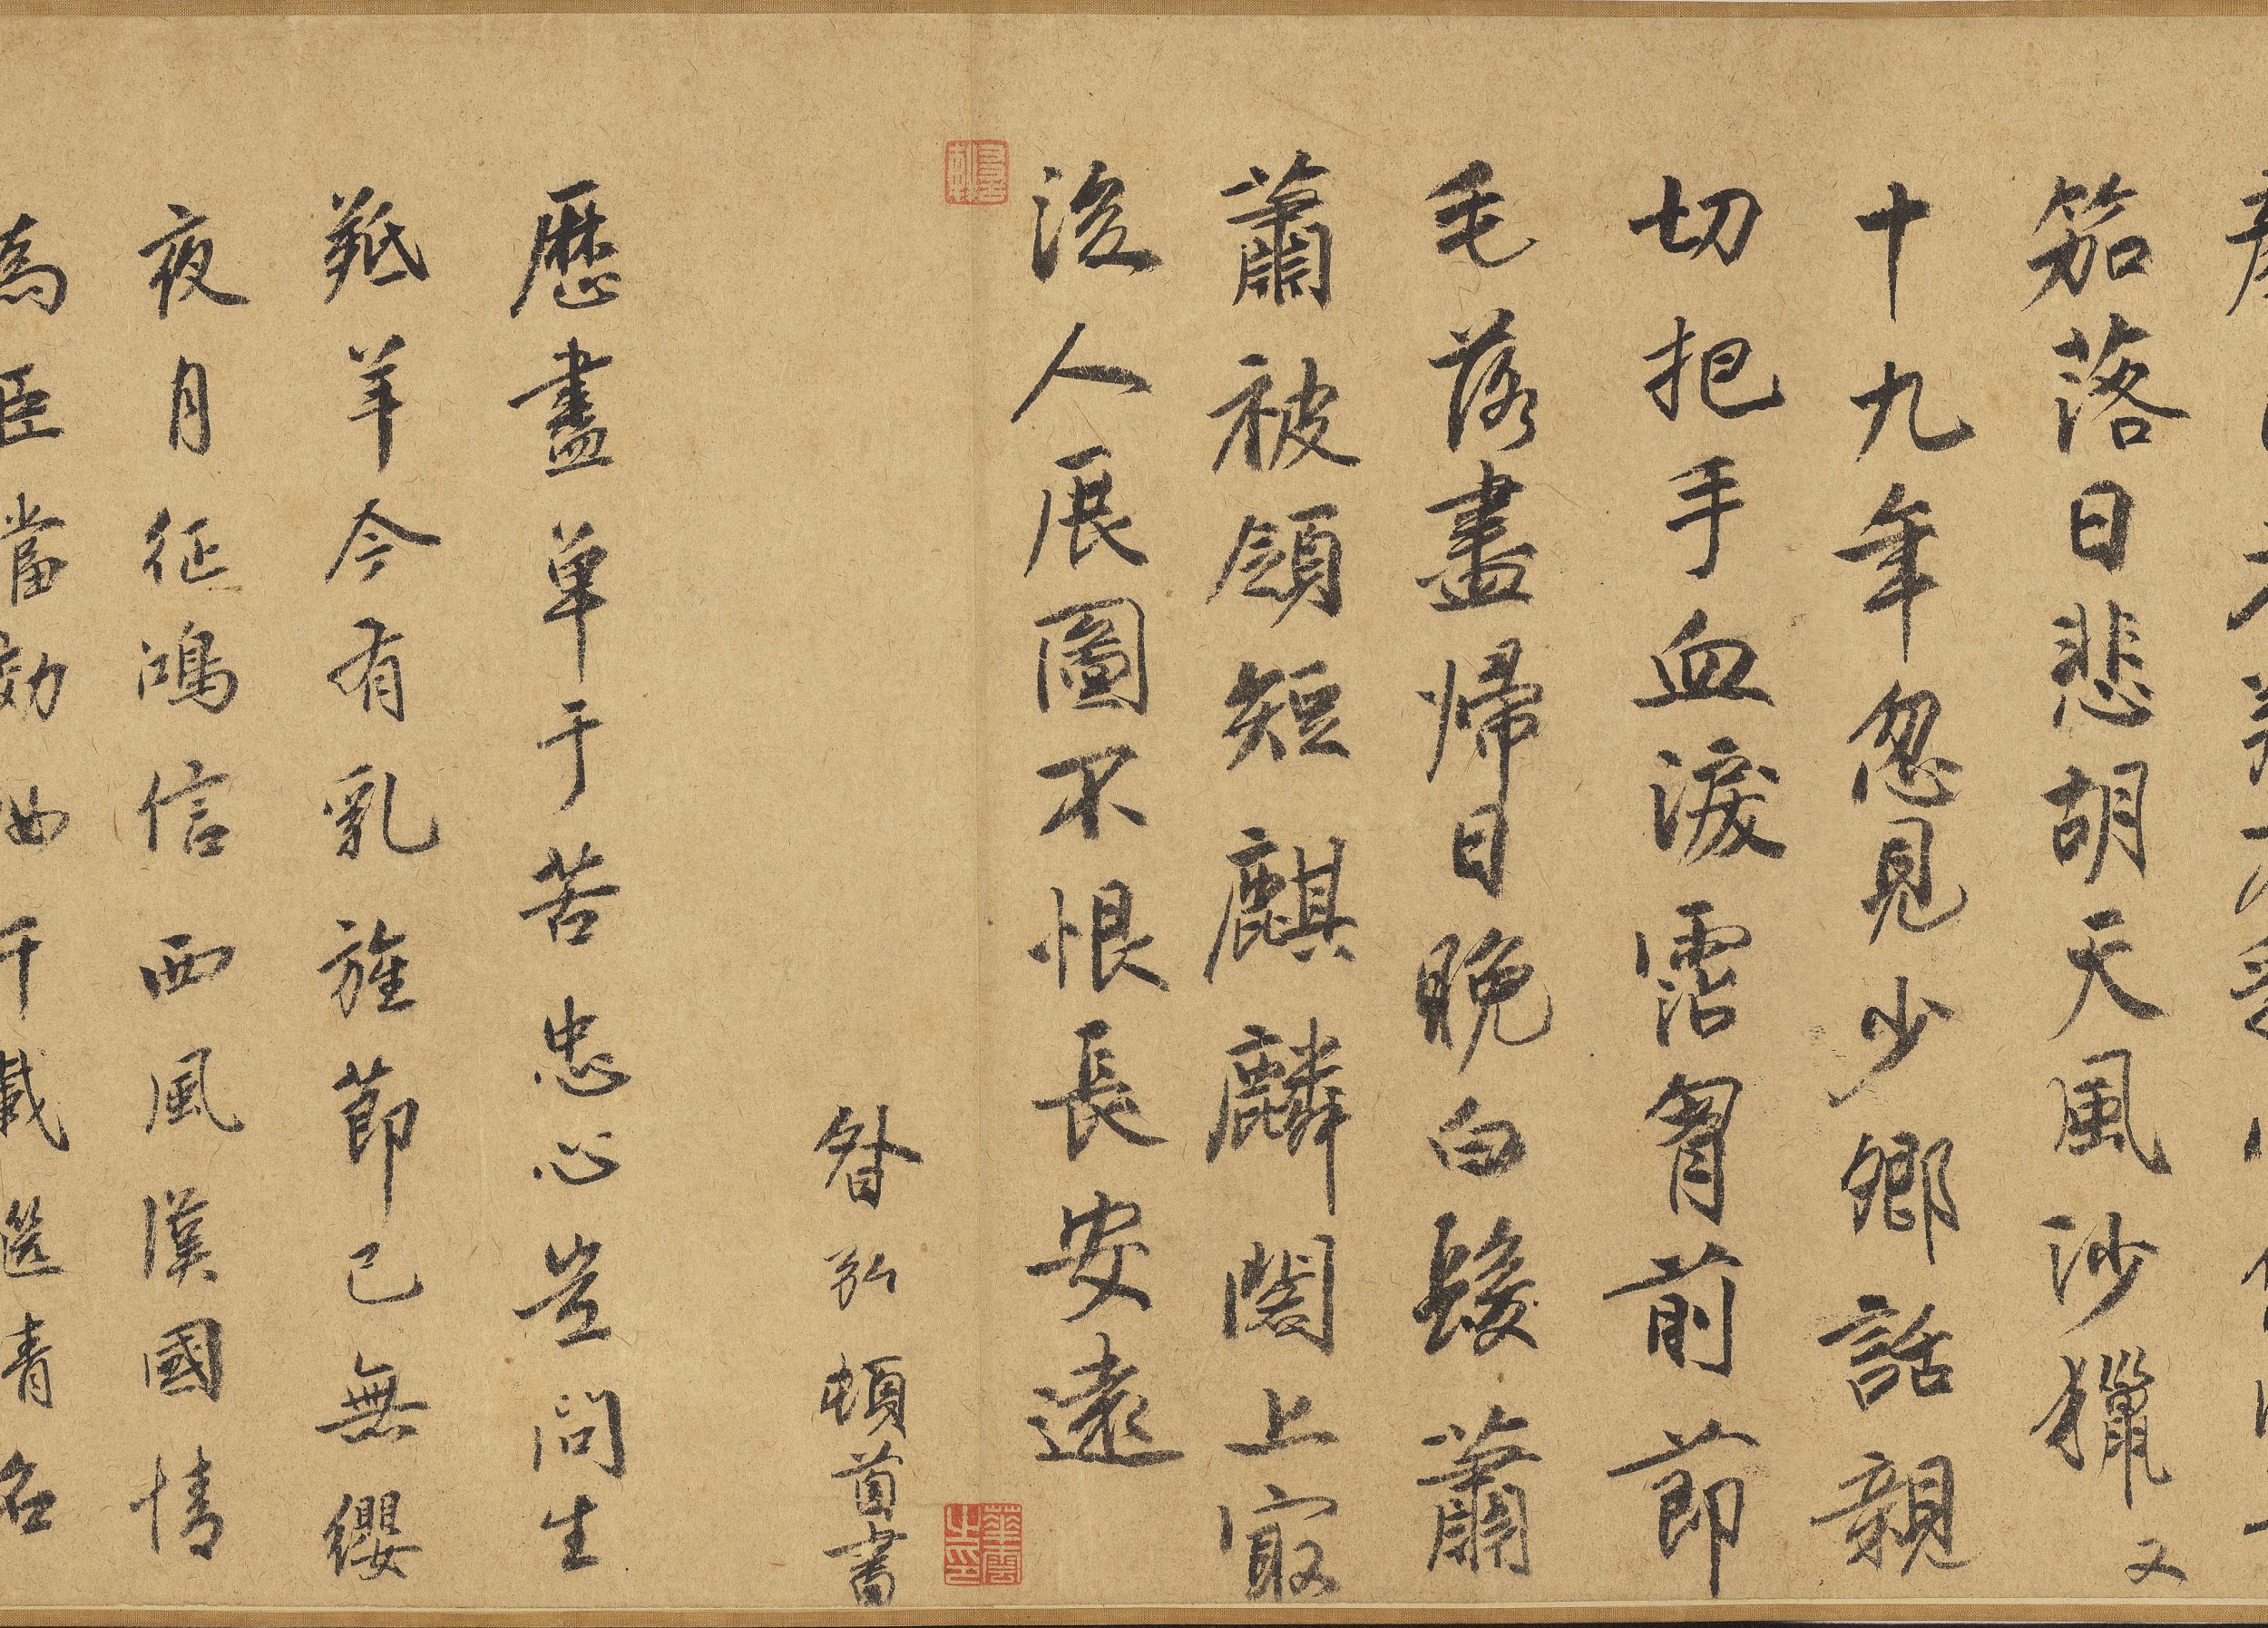 笳落日悲胡天風沙獵又
十九年忽見少卿話親
切把手血淚霑胷前節
毛落盡歸日晚白髮蕭
蕭被領短麒麟閣上㝡
後人展圖不恨長安遠
昝弘頓首書
華雲之印
歷盡單于苦忠心豈問生
羝羊今有乳旌節已無纓
夜月征鴻信西風漢國情
為臣當効千載青名